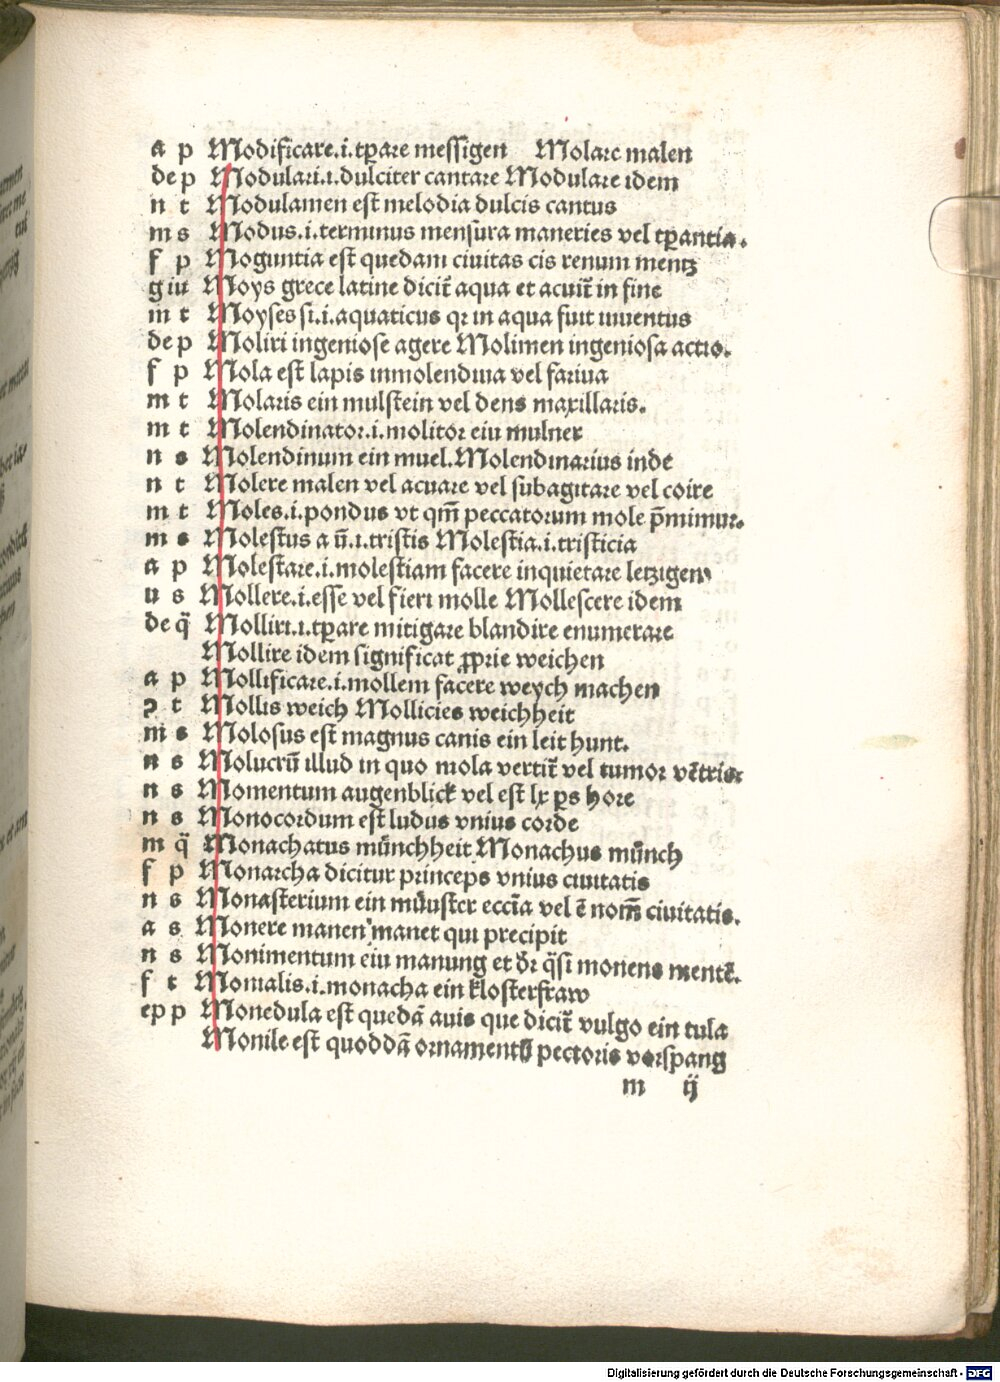 a p Modificare.i.tꝑare meſſigen Molare malen
de p Modulari.i.dulciter cantare Modulare idem
n t Modulamen eſt melodia dulcis cantus
m s Modus.i.terminus menſura maneries vel tꝑantia.
f p Moguntia eſt quedam ciuitas cis renum mentz
g iu Moys grece latine dicit̄ aqua et acuit̄ in fine
m t Moyses ſi.i.aquaticus qꝛ in aqua fuit inuentus
de p Moliri ingenioſe agere Molimen ingenioſa actio.
f p Mola eſt lapis inmolendina vel farina
m t Molaris ein mulſtein vel dens maxillaris.
m t Molendinatoꝛ.i.molitoꝛ ein mulner
n s Molendinum ein muel.Molendinarius inde
n t Molere malen vel acuare vel ſubagitare vel coire
m t Moles.i.pondus vt qm̄ peccatorum mole p̄mimur.
m s Moleſtus a ū.i.triſtis Moleſtia.i.triſticia
a p Moleſtare.i.moleſtiam facere inquietare letzigen
n s Mollere.i.eſſe vel fieri molle Molleſcere idem
de q̄ Molliri.i.tꝑare mitigare blandire enumerare
Mollire idem ſignificat ꝓprie weichen
a p Mollificare.i.mollem facere weych machen
ꝯ t Mollis weich Mollicies weichheit
m s Moloſus eſt magnus canis ein leit hunt.
n s Molucrū illud in quo mola vertit̄ vel tumoꝛ vētris
n s Momentum augenblick vel eſt lx ꝑs hore
n s Monocordum eſt ludus vnius corde
m q̄ Monachatus mūnchheit Monachus mūnch
f p Monarcha dicitur princeps vnius ciuitatis
n s Monaſterium ein mūnſter ecc̄ia vel ē nom̄ ciuitatis.
a s Monere manen manet qui precipit
n s Monimentum ein manung et d̄r q̄ſi monens mentē.
f t Monialis.i.monacha ein kloſterfraw
ep p Monedula eſt quedā auis que dicit̄ vulgo ein tula
Monile eſt quoddā ornamentū pectoris vorſpang
m ij
Digitalisierung gefördert durch die Deutsche Forschungsgemeinschaft - DFG